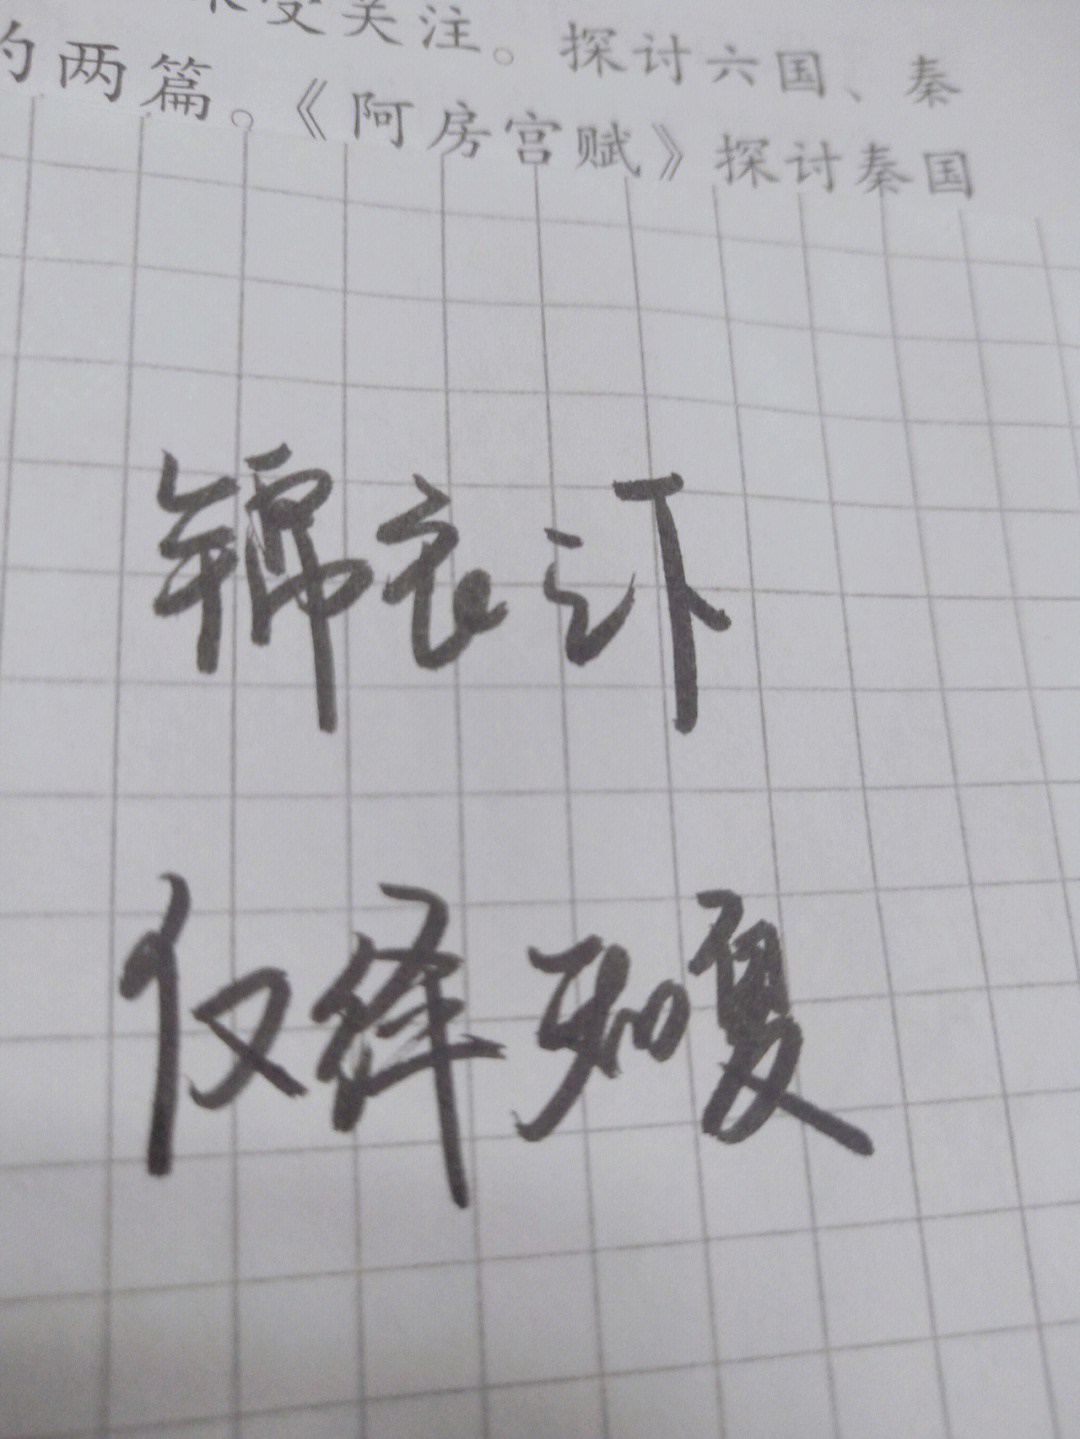 受关注。探讨六国、秦
的两篇。《阿房宫赋》探讨秦国
锦衣之下
仅绎和夏